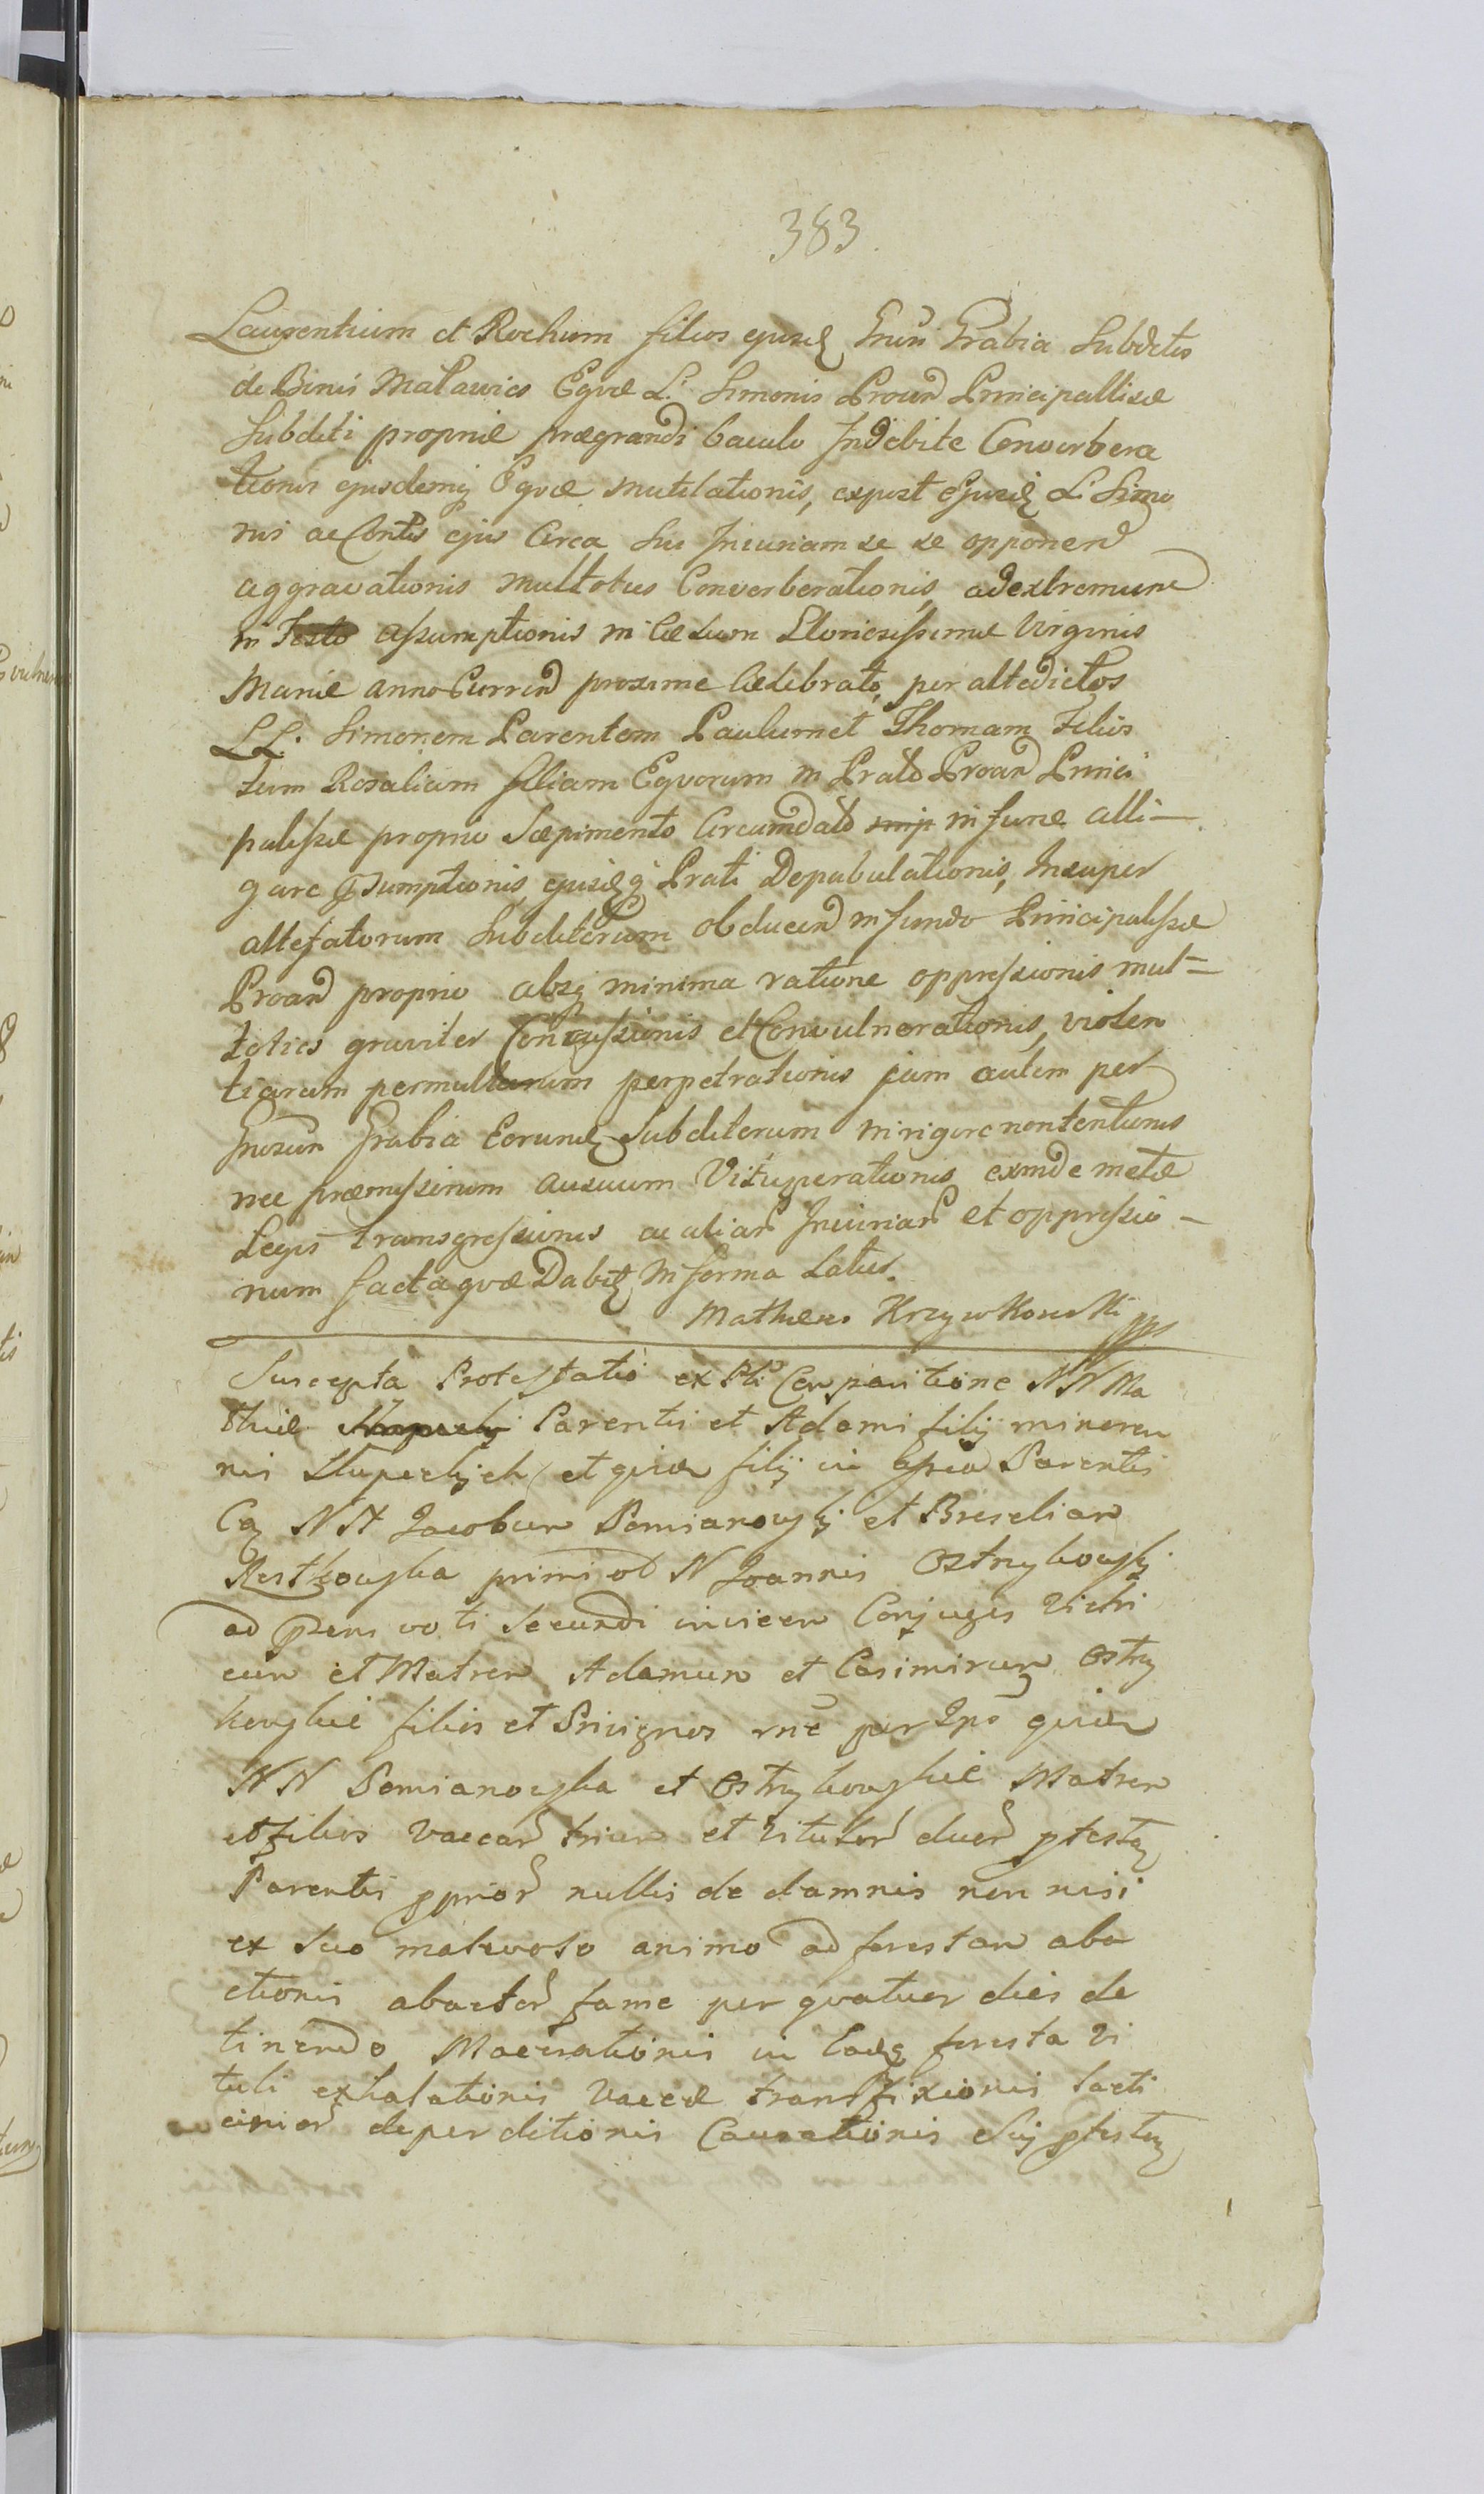 383.
Laurentium et Rochum filios ejusdē Gnūsi Grabia Subditos
de Binis Matawica Eqvæ L. Simonis Proand Principallisæ
Subditi propriæ prægrandi baculo Indebite Converbera
tionis ejusdemq Eqvæ mutilationis, expost Ejusdē L Simo
nis ac Contis ejus Circa sui Iniuriam se se opponend
aggravationis multoties Converberationis, ad extremum
in Festo Assumptionis in Cælum Gloriosissimæ Virginis
Mariæ anno Currend proxime Celebrato, per altedictos
LL. Simonem Parentem Paulum et Thomam Filios
tum Rosaliam filiam Eqvorum in Prato Proand Princi
palissæ proprio Sæpimento Circumdato in fune alli-
gare præsumptionis, ejusdēq Prati Depabulationis, Insuper
attefatorum Subditorum obducend in fundo Principalissæ
Proand proprio absq minima ratione oppressionis mul=
toties graviter Concussionis et Convulnerationis, violen
tiarum permultarum perpetrationis jam autem per
Gnosum Grabia Eorundē Subditorum in rigore non tentionis
nec præmissinum ausuum Vituperationis exinde metæ
Legis transgressionis ac aliar Iniuriar et oppressio-
num facta qvæ Dabit in forma Latius.
Matheus Krzywkowski mpp
Suscepta Protestatio ex Pli Comparitione NN Ma
thiæ Parentis et Adami filij minoren
nis Słupeckich et quidē filij in assia Parentis
Cq NN Jacobum Pomianowski et Brigelian
Rostkowska primi ob N Joannis Ostrykowski
ad præns voti Secundi invicem Conjuges Vitri
cum et Matrem Adamum et Casimirum Ostry
kowskie filios et Privignos rne per Ipso quidē
NN Pomianowska et Ostrykowskie Matrem
et filios Vaccar trium et Vitulor duor ptestē
Parentis pprior nullis de damnis non nisi
ex suo malevolo animo ad forestam aba
ctionis abactor fame per qvatuor dies de
tinendo Macerationis in Eadē foresta Vi
tuli exhalationis Vaccæ transfixionis lacti
cinior deperditionis Causationis Suij ptestē